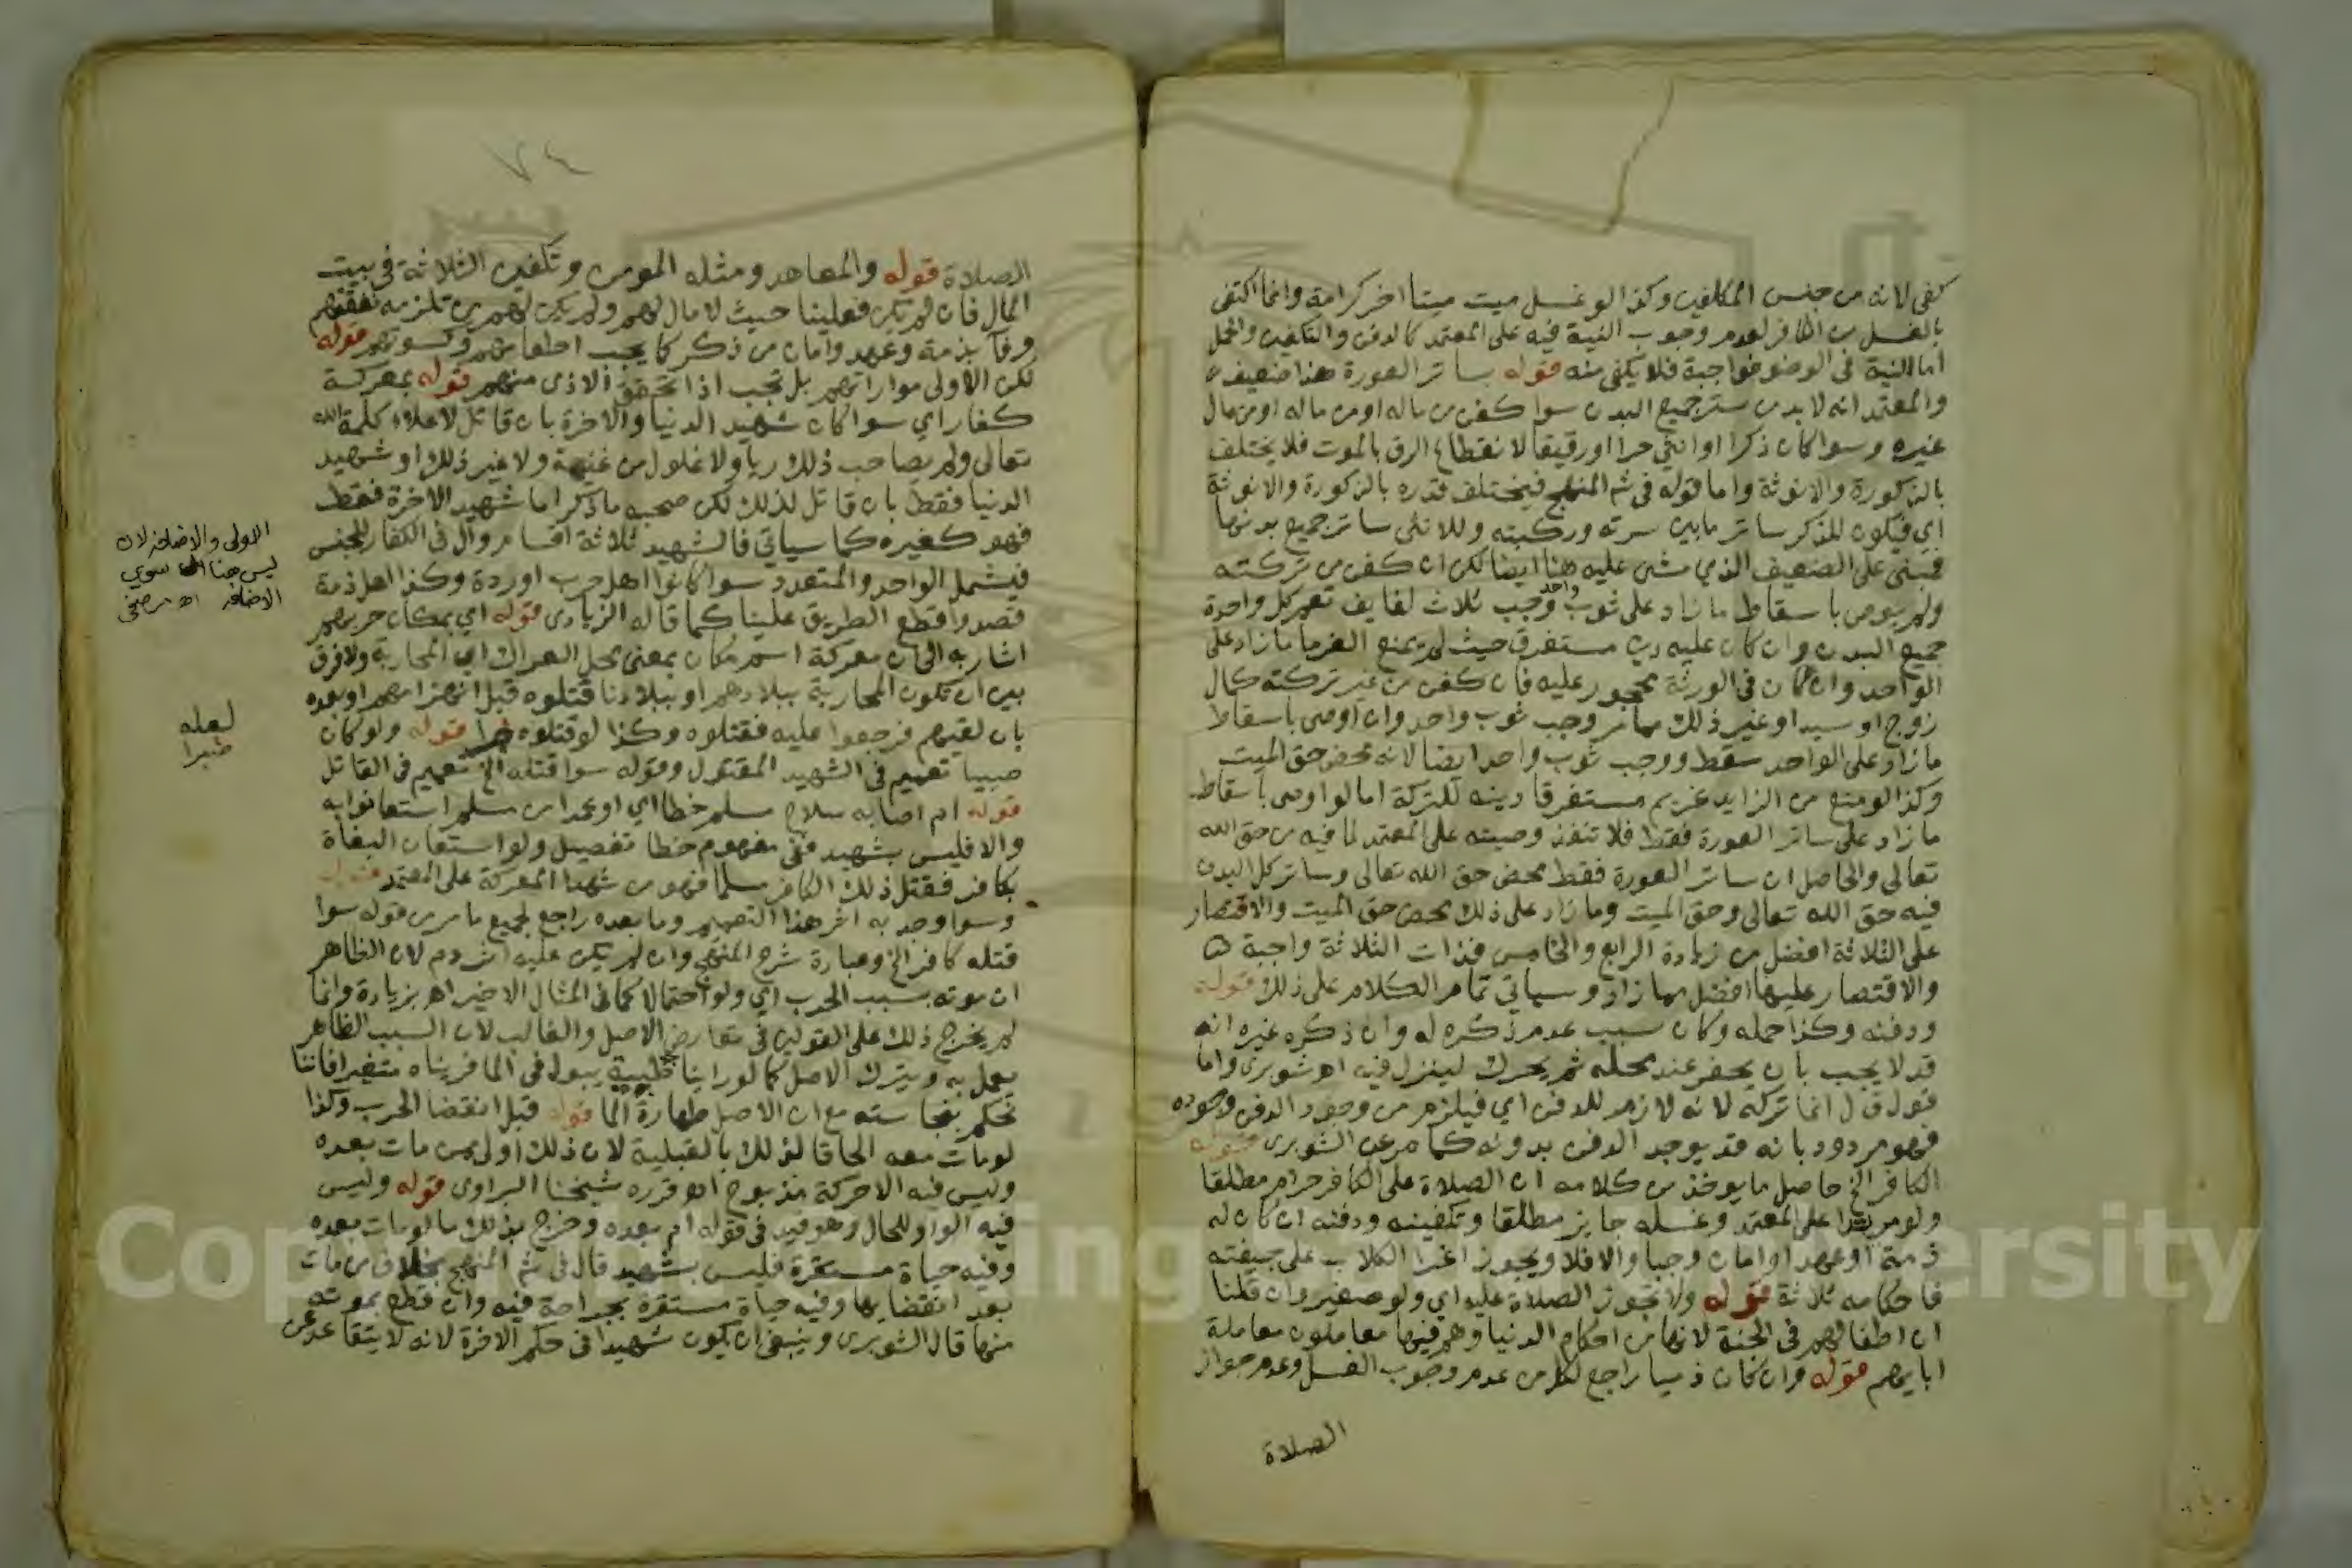 كفى لانه من جنس المكلفين وكذا لو غسل ميت ميتا اخر كرامة وانما اكتفى
بالغسل من الكافر لعدم وجوب النية فيه على المعتمد كالدفن والتكفين والحمل
اما النية في الوضو فواجبة فلا يكفى منه قوله ساتر العورة هذا ضعيف
والمعتمد انه لا بد من ستر جميع البدن سوا كفن من ماله او من مال
غيره وسوا كان ذكرا او انثى حرا او رقيقا لانقطاع الرق بالموت فلا يختلف
بالذكورة والانوثة واما قوله في شم المنهج فيختلف قدره بالذكورة والانوثة
اي فيكون للذكر ساتر ما بين سرته وركبته وللانثى ساتر جميع بدنها
فمبنى على الضعيف الذي مشى عليه هنا ايضا لكن ان كفن من تركته
ولم يوص باسقاط ما زاد على ثوب واحد وجب ثلاث لفايف تعم كل واحدة
جميع البدن وان كان عليه دين مستغرق حيث لم يمنع الغرما ما زاد على
الواحد وان كان في الورثة محجور عليه فان كفن من غير تركته كمال
زوج او سيد او غير ذلك مما مر وجب ثوب واحد وان اوصى باسقاط
ما زاد على الواحد سقط ووجب ثوب واحد ايضا لانه محض حق الميت
وكذا لو منع من الزايد غريم مستغرقا دينه للتركة اما لو اوصى باسقاط
ما زاد على ساتر العورة فقط فلا تنفذ وصيته على المعتمد لما فيه من حق الله
تعالى والحاصل ان ساتر العورة فقط محض حق الله تعالى وساتر كل البدن
فيه حق الله تعالى وحق الميت وما زاد على ذلك محض حق الميت والاقتصار
على الثلاثة افضل من زيادة الرابع والخامس فذات الثلاثة واجبة
والاقتصار عليها افضل مما زاد وسياتي تمام الكلام على ذلك قوله
ودفنه وكذا حمله وكان سبب عدم ذكره له وان ذكره غيره انه
قد لا يجب بان يحفر عند محله ثم يحرك لينزل فيه اه شوبرى واما
قول ق ل انما تركه لانه لازم للدفن اي فيلزم من وجود الدفن وجوده
فهو مردود بانه قد يوجد الدفن بدونه كما مر عن الشوبرى قوله
الكافر الخ حاصل ما يوخذ من كلامه ان الصلاة على الكافر حرام مطلقا
ولو مرتدا على المعتمد وغسله جايز مطلقا وتكفينه ودفنه ان كان له
ذمة او عهد او امان وجبا والا فلا ويجوز اغرا الكلاب على جيفته
فاحكامه ثلاثة قوله ولا تجوز الصلاة عليه اي ولو صغير وان قلنا
ان اطفالهم في الجنة لانها من احكام الدنيا وهم فيها معاملون معاملة
ابايهم قوله وان كان ذميا راجع لكل من عدم وجوب الغسل وعدم جواز
الصلاة
٧٤
الصلاة قوله والمعاهد ومثله المومن وتكفين الثلاثة في بيت
المال فان لم يكن فعلينا حيث لا مال لهم ولم يكن لهم من تلزمه نفقتهم
وفآ بذمة وعهد وامان من ذكر كما يجب اطعامهم وكسوتهم قوله
لكن الاولى مواراتهم بل تجب اذا تحقق الاذى منهم قوله بمعركة
كفار اي سوا كان شهيد الدنيا والاخرة بان قاتل لاعلاء كلمة الله
تعالى ولم يصاحب ذلك ريا ولا غلول من غنيمة ولا غير ذلك او شهيد
الدنيا فقط بان قاتل لذلك لكن صحبه ما ذكر اما شهيد الاخرة فقط
فهو كغيره كما سياتي فالشهيد ثلاثة اقسام وآل في الكفار للجنس
فيشمل الواحد والمتعدد سوا كانوا اهل حرب او ردة وكذا اهل ذمة
قصدوا قطع الطريق علينا كما قاله الزيادى قوله اي بمكان حربهم
اشار به الى ان معركة اسم مكان بمعنى محل العراك اي المحاربة ولا فرق
بين ان تكون المحاربة ببلادهم او ببلادنا قتلوه قبل انهزامهم او بعده
بان لقيهم فرجعوا عليه فقتلوه وكذا لو قتلوه قوله ولو كان
صبيا تعميم في الشهيد المقتول وقوله سوا قتله الخ تعميم في القاتل
قوله ام اصابه سلاح مسلم خطا اي او عمدا من مسلم استعانوا به
والا فليس بشهيد ففى مفهوم خطا تفصيل ولو استعان البغاة
بكافر فقتل ذلك الكافر مسلما فهو من شهدا المعركة على المعتمد قوله
وسوا وجد به اثر هذا التعميم وما بعده راجع لجميع ما مر من قوله سوا
قتله كافر الخ وعبارة شرح المنهج وان لم يكن عليه اثر دم لان الظاهر
ان موته بسبب الحرب اي ولو احتمالا كما في المثال الاخير اه بزيادة وانما
لم يخرج ذلك على القولين في تعارض الاصل والغالب لان السبب الظاهر
يعمل به ويترك الاصل كما لو راينا ظبية تبول في الما فريناه متغيرا فاننا
نحكم بنجاسته مع ان الاصل طهارة الما قوله قبل انقضا الحرب وكذا
لو مات معه الحاقا لذلك بالقبلية لان ذلك اولى ممن مات بعده
وليس فيه الا حركة مذبوح اه قرره شيخنا البراوى قوله وليس
فيه الواو للحال وهو قيد في قوله ام بعده وخرج بذلك ما لو مات بعده
وفيه حياة مستقرة فليس بشهيد قال في شم المنهج بخلاف من مات
بعد انقضايها وفيه حياة مستقرة بجراحة فيه وان قطع بموته
منها قال الشوبرى وينبغى ان يكون شهيدا في حكم الاخرة لانه لا يتقاعد عن
الاولى والاضافة لان
ليس هنا سوي
الاضافة اه مرصفى
لعله
صبرا